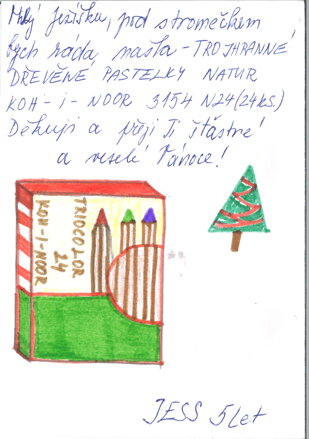 Milý Ježíšku, pod stromečkem
bych ráda našla - TROJHRANNÉ
DŘEVĚNÉ PASTELKY NATUR
KOH-I-NOOR 3154 N24 (24KS.)
Děkuji a přeji Ti šťastné
a veselé Vánoce!
TRIOCOLOR
24
KOH-I-NOOR
JESS 5 let